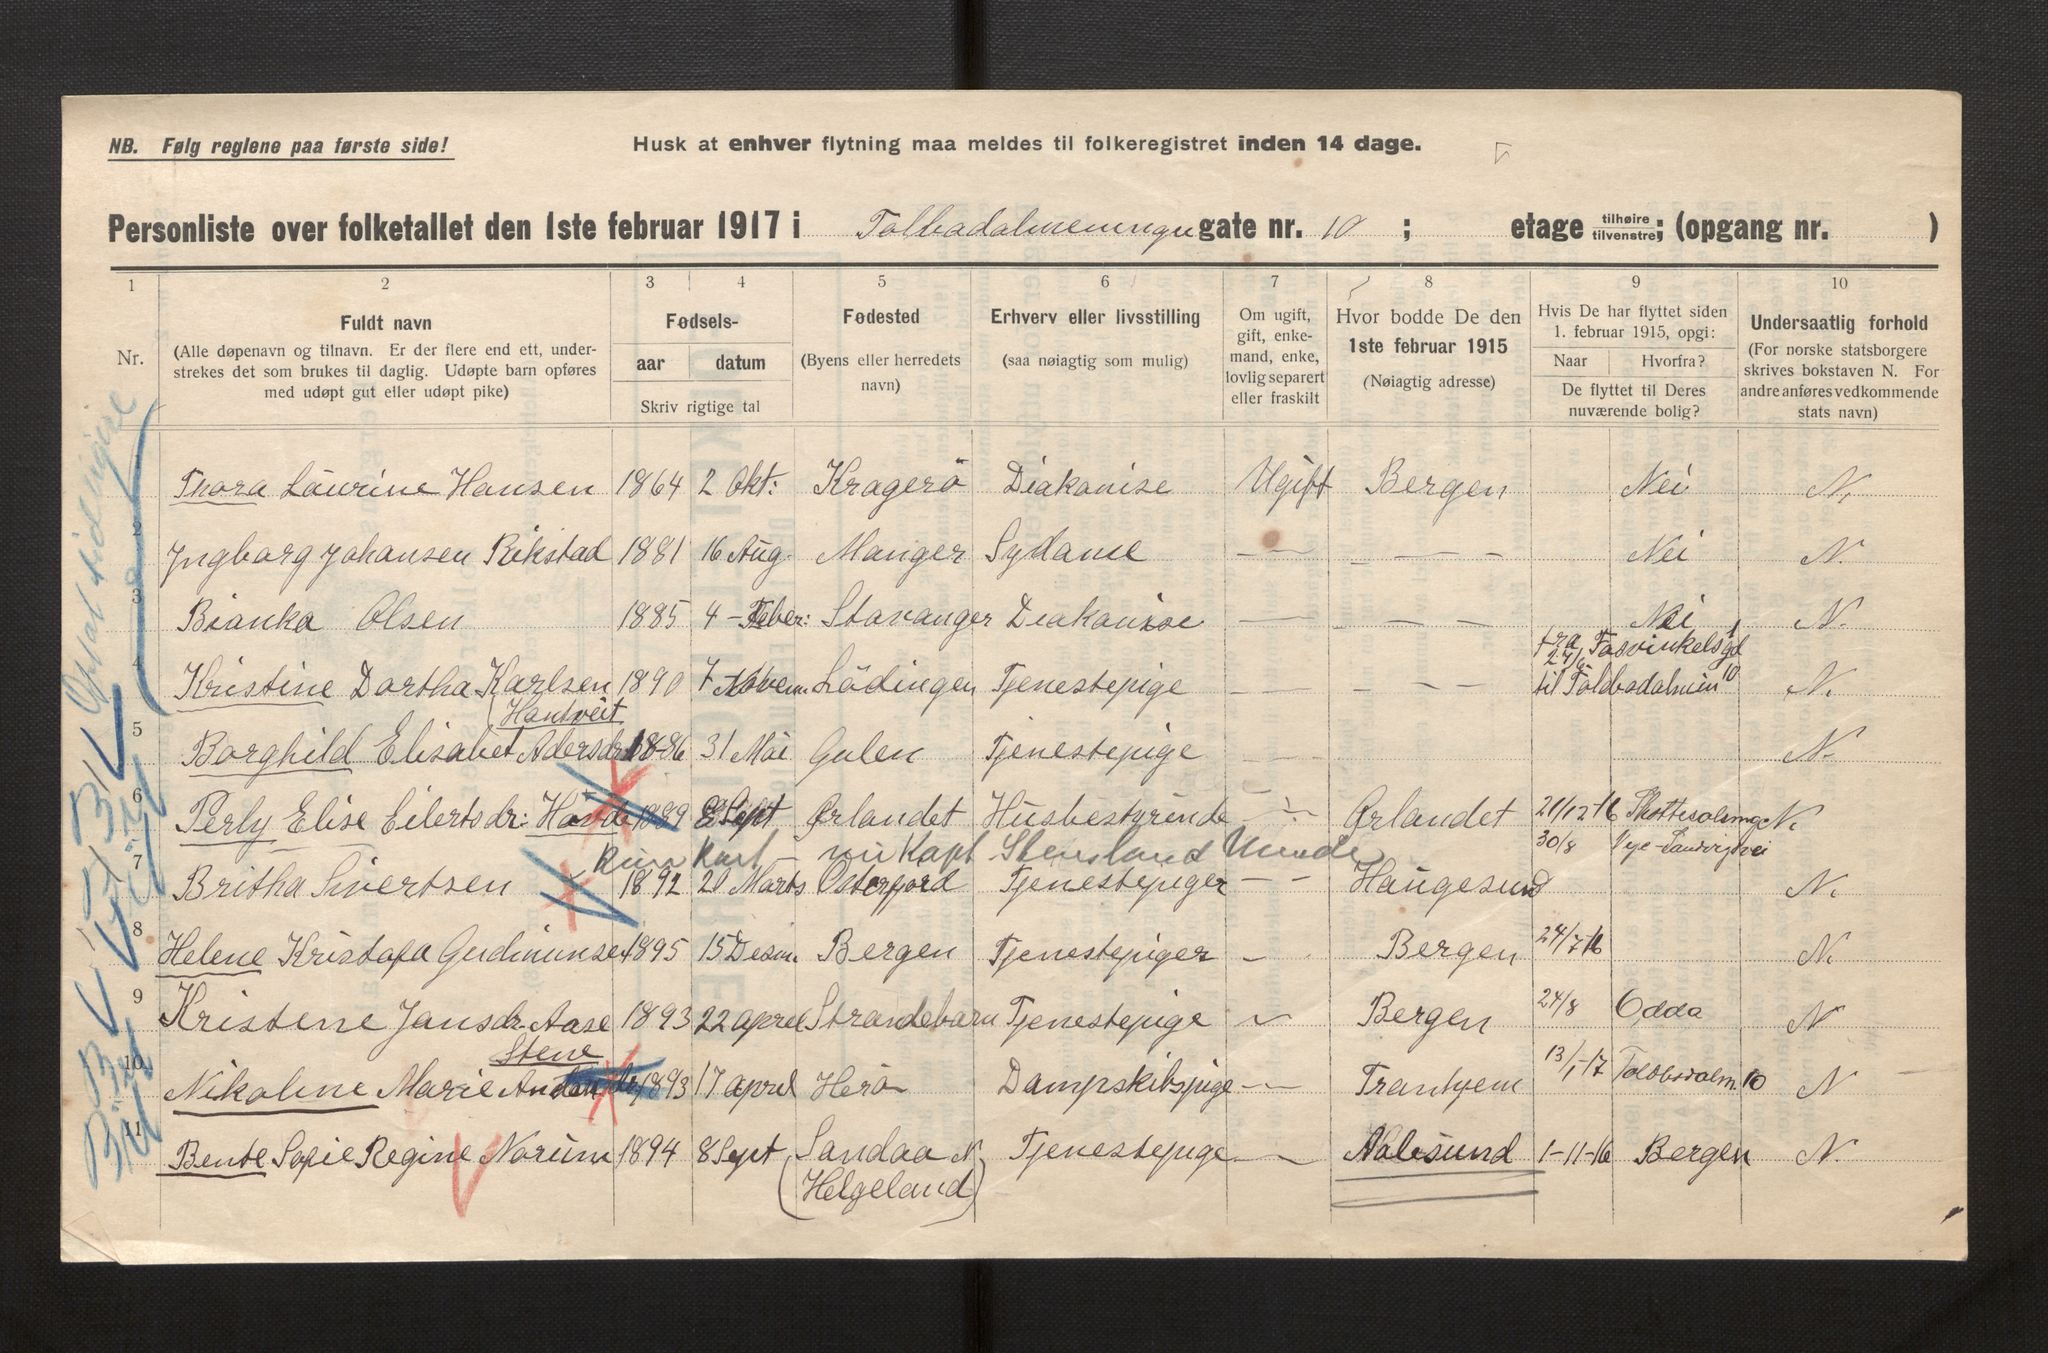 NB. Følg reglene paa første side!
Husk at enhver flytning maa meldes til folkeregistret inden 14 dage.
Personliste over folketallet den 1ste februar 1917 i Tolbodalmenningen gate nr. 10 ; etage tilhøire tilvenstre; (opgang nr. )
1 2 3 4 5 6 7 8 9 10
Nr.
Fuldt navn
(Alle døpenavn og tilnavn. Er der flere end ett, under-
strekes det som brukes til daglig. Udøpte barn opføres
med udøpt gut eller udøpt pike)
Fødsels-
aar datum
Skriv rigtige tal
Fødested
(Byens eller herredets
navn)
Erhverv eller livsstilling
(saa nøiagtig som mulig)
Om ugift,
gift, enke-
mand, enke,
lovlig separert
eller fraskilt
Hvor bodde De den
1ste februar 1915
(Nøiagtig adresse)
Hvis De har flyttet siden
1. februar 1915, opgi:
Naar Hvorfra?
De flyttet til Deres
nuværende bolig?
Undersaatlig forhold
(For norske statsborgere
skrives bokstaven N. For
andre anføres vedkommende
stats navn)
Thora Laurine Hansen 1864 2 Okt: Kragerö Diakonise Ugift Bergen Nei N.
2 Ingborg Johansen Rikstad 1881 16 Aug. Manger Sydame — — Nei N.
3 Bianka Olsen 1885 4 Feber: Stavanger Diakonise — — Nei N.
fra 27/6 Fosvinkelsgd
4 Kristine Dortha Karlsen 1890 7 Novem. Lödingen Tjenestepige — — til Toldbodalmin 10 N.
(Hantveit
5 Borghild Elisabet Adersdr 1886 31 Mai Gulen Tjenestepige — N.
6 Perly Elise Eilertsdr: 1889 Sept Ørlandet Husbestyrinde — Ørlandet 21/12-16 N.
30/8 Nye-Sandvigsvei
7 Britha Sivertsen 1892 20 Marts Osterfjord Tjenestepiger — Haugesund N.
8 Helene Kristofa Gudmunsen 1895 15 Desm. Bergen Tjenestepiger — Bergen 24/7-16 N.
9 Kristene Jansdr. Aase 1893 22 april Strandebarm Tjenestepige — Bergen 24/8 Odda N
Stene
10 Nikoline Marie 1893 17 april Herö Dampskibspige — Trontjem 13/1-17 Toldbodalm 10 N
11 Bente Sofie Regine Norum 1894 8 Sept Sandaa N. Tjenestepige — Aalesund 1-11-16 Bergen N.
(Helgeland)